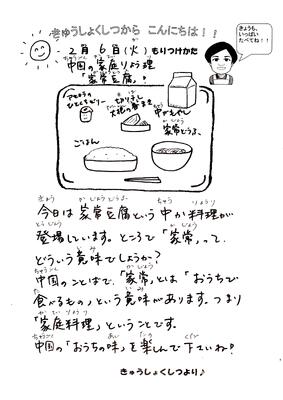 きゅうしょくしつから こんにちは！！
きょうも、
いっぱい
たべてね！！
2月6日(火) もりつけかた
中国の家庭りょう理
「家常豆腐」
アセロラの
ひとくちゼリー
切りぼし
大根の春まき
中かもやし
家常どうふ
ごはん
今日は家常豆腐という中か料理が
登場しています。ところで「家常」って、
どういう意味でしょうか？
中国のことばで、「家常」とは「おうちで
食べるもの」という意味があります。つまり
「家庭料理」ということです。
中国の「おうちの味」を楽しんで下さいね！
きゅうしょくしつより♪